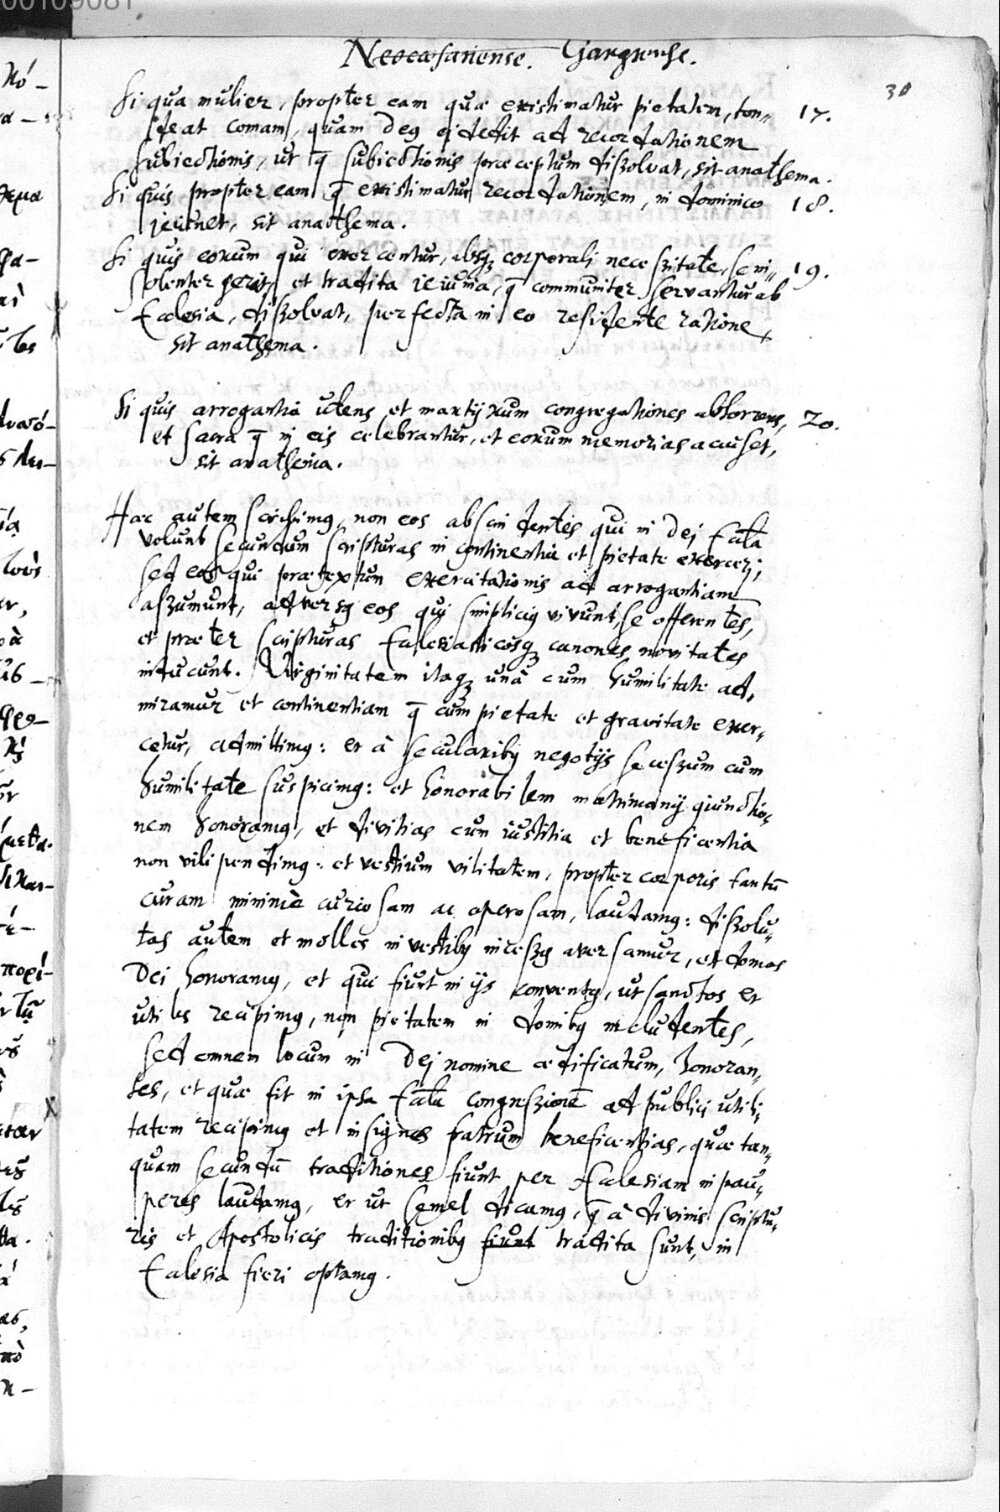 00109081
Neocæsariense. Gangrense.
30
Si qua mulier, propter eam quæ existimatur pietatem, ton- 17.
deat comam, quam deus ei dedit ad recordationem
subiectionis, ut q̄ subiectionis præceptum dissolvat, sit anathema.
Si quis propter eam q̄ existimatur recordationem, in dominico 18.
jeiunet, sit anathema.
Si quis eorum qui exercentur, absq; corporali necessitate, se in- 19.
solenter gerat, et tradita ieiunia, q̄ communiter servantur ab
Ecclesia, dissolvat, perfecta in eo residente ratione,
sit anathema.
Si quis arrogantia utens, et martyrum congregationes abhorrens, 20.
et sacra q̄ in eis celebrantur, et eorum memorias accuset,
sit anathema.
Hæc autem scribimus, non eos abscindentes qui in Dei Eccl̄a
volunt secundum scripturas in continentia et pietate exerceri;
sed eos qui prætextum exercitationis ad arrogantiam
assumunt, adversus eos qui simplicius vivunt, se offerentes,
et præter scripturas Ecclesiasticosq; canones novitates
inducunt. Virginitatem itaq; unà cum humilitate ad-
miramur et continentiam q̄ cum pietate et gravitate exer-
cetur, admittimus: et à secularibus negotijs secessum cum
humilitate suspicimus: et honorabilem matrimonij coniunctio-
nem honoramus, et divitias cum iustitia et beneficentia
non vilipendimus: et vestium vilitatem, propter corporis tantū
curam minimè curiosam ac operosam, laudamus: dissolu-
tos autem et molles in vestibus incessus aversamur, et domos
Dei honoramus, et qui fiunt in ijs conventus, ut sanctos et
utiles recipimus, non pietatem in domibus includentes,
sed omnem locum in Dei nomine ædificatum, honoran-
tes, et quæ fit in ipsa Eccl̄a congressionē ad publici utili-
tatem recipimus et insignes fratrum beneficentias, quæ tan-
quam secundū traditiones fiunt per Ecclesiam in pau-
peres laudamus, et ut semel dicamus, q̄ à divinis scriptu-
ris et Apostolicis traditionibus fiunt tradita sunt, in
Ecclesia fieri optamus.